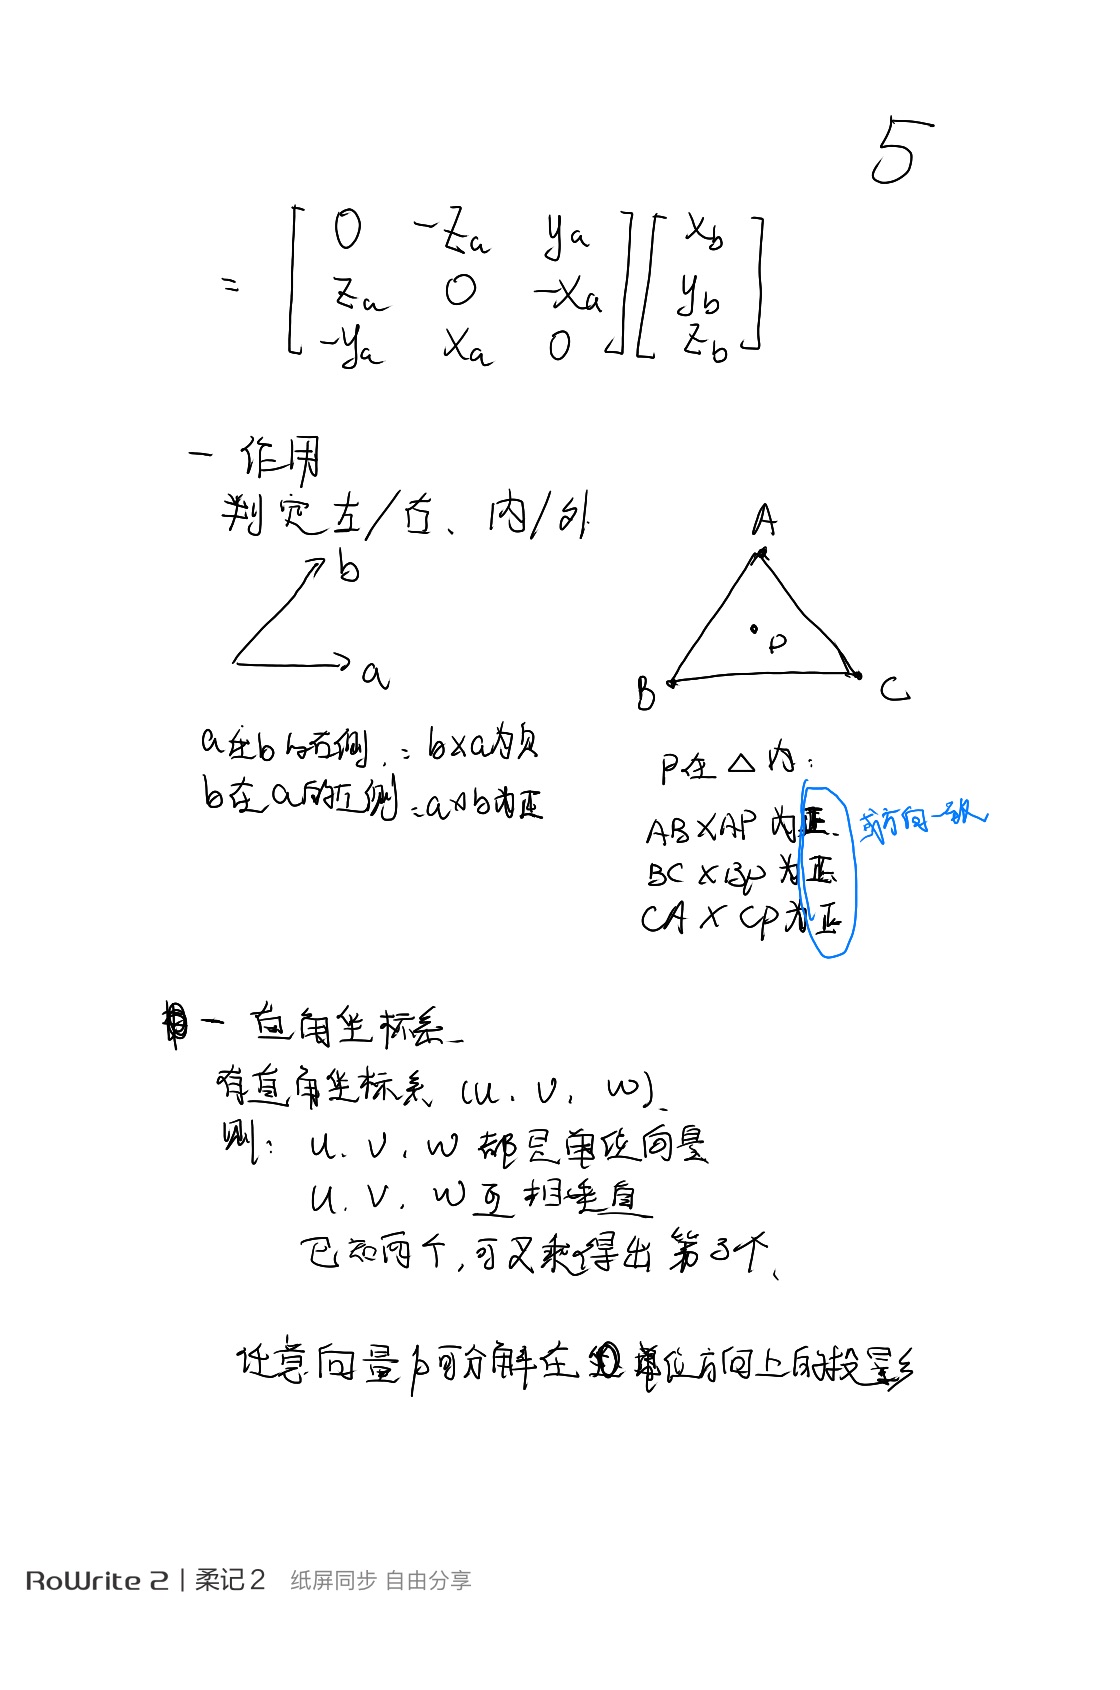 5
= [ 0 -Za ya ] [ Xb ]
[ Za 0 -Xa ] [ yb ]
[ -ya Xa 0 ] [ Zb ]
一 作用
判定左/右、内/外
b
a
A
P
B
C
a在b的右侧.: b×a为负
b在a的左侧:a×b为正
P在△内:
AB×AP 为正
或方向一致
BC×BP 为正
CA×CP为正
一 直角坐标系
有直角坐标系 (u. v. w).
则: u. v. w 都是单位向量
u. v. w 互相垂直
已知两个,可叉乘得出第3个.
任意向量p可分解在单位方向上的投影
RoWrite 2 | 柔记2 纸屏同步 自由分享